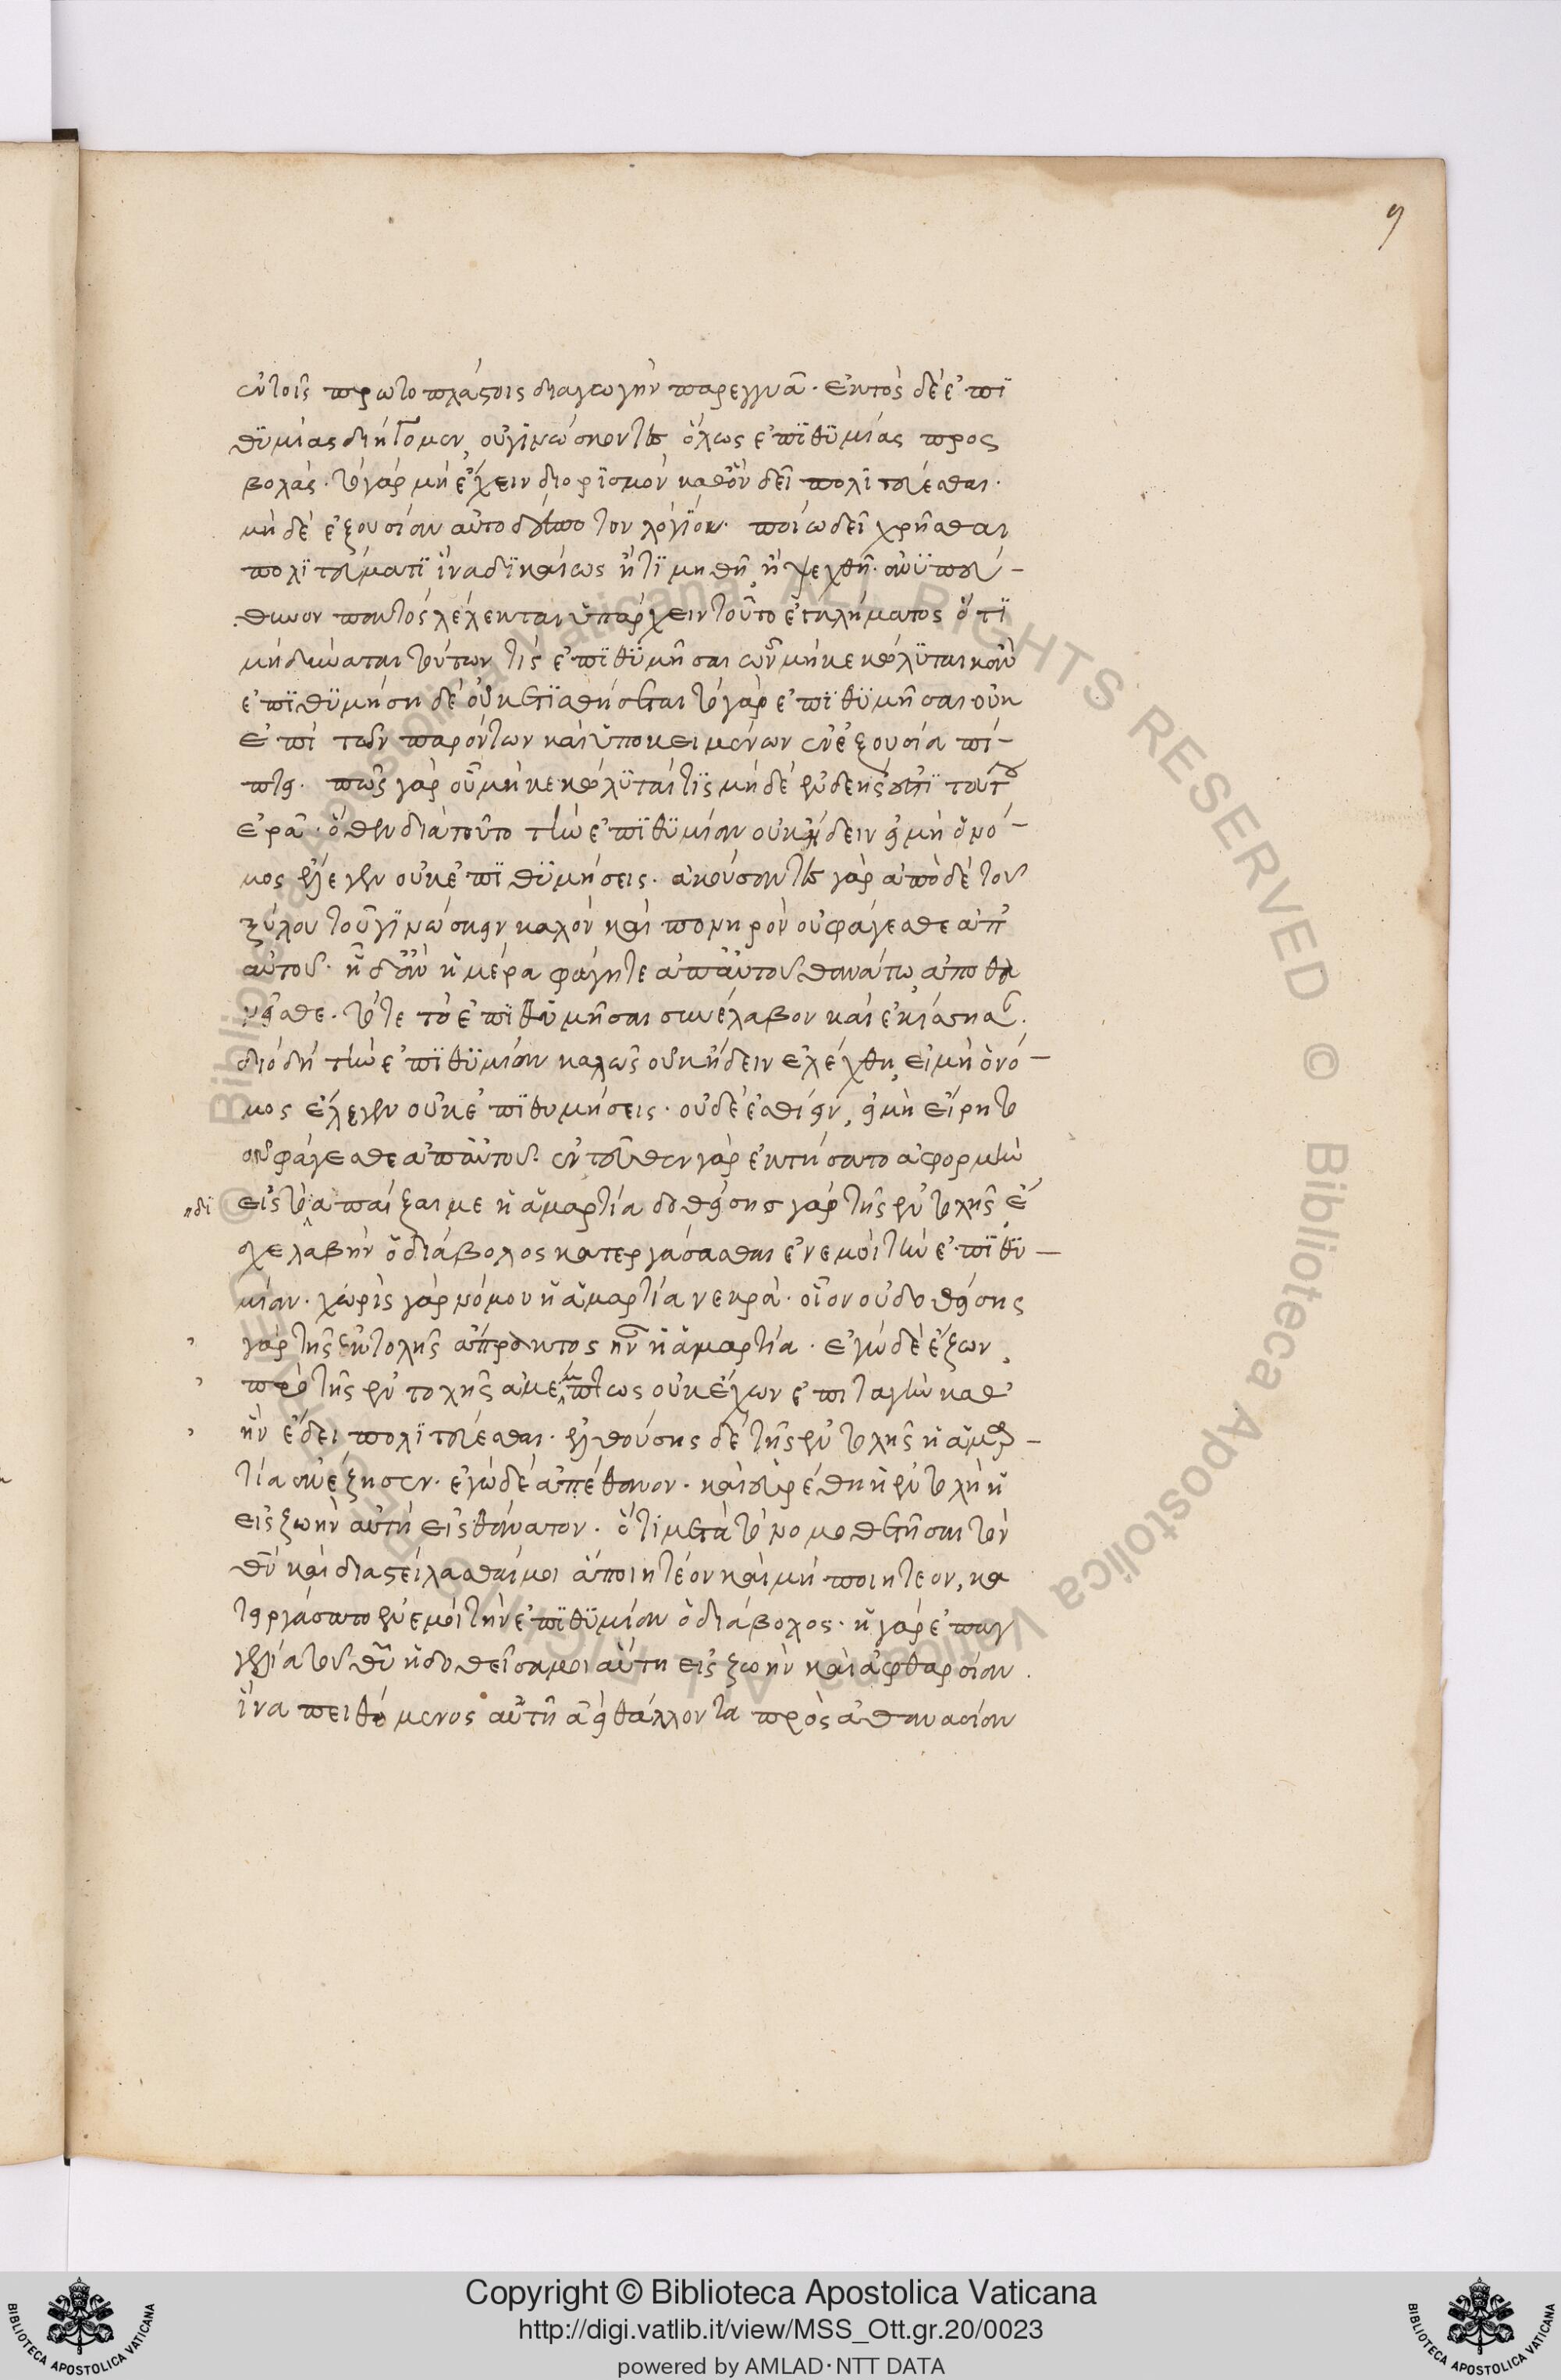 9
ἐν τοῖς πρωτοπλάστοις διαγωγὴν παρεγγυᾶ. ἐκτὸς δὲ ἐπι
θυμίας διήγομεν, οὐ γινώσκοντες ὅλως ἐπιθυμίας προς
βολάς. τὸ γὰρ μὴ ἔχειν διορισμὸν καθ' ὃν δεῖ πολιτεύεσθαι.
μὴ δὲ ἐξουσίαν αὐτοδέσποτον λογισμὸν ποίω δεῖ χρῆσθαι
πολιτεύματι ἵνα δικαίως ἢ τιμηθῆ, ἢ ψεχθῆ. ἀνυπεύ-
θυνον παντὸς λέλεκται ὑπάρχειν τοῦτο ἐγκλήματος ὅτι
μὴ δύναται τούτων τίς ἐπιθυμῆσαι ὧν μὴ κεκώλυται κἂν
ἐπιθυμήση δὲ οὐκ αἰτιαθήσεται τὸ γὰρ ἐπιθυμῆσαι οὐκ
ἐπὶ τῶν παρόντων καὶ ὑποκειμένων ἐν ἐξουσία πί-
πτει. πῶς γὰρ οὗ μὴ κεκώλυταί τις μὴ δὲ ἐνδεής ἐστι τούτου
ἐρᾶ. ὅθεν διὰ τοῦτο τὴν ἐπιθυμίαν οὐκ ἤδειν εἰ μὴ ὁ νό-
μος ἔλεγεν οὐκ ἐπιθυμήσεις. ἀκούσαντες γὰρ ἀπὸ δὲ τοῦ
ξύλου τοῦ γινώσκειν καλὸν καὶ πονηρὸν οὐ φάγεσθε ἀπ'
αὐτοῦ. ἧ δ' ἂν ἡμέρα φάγητε ἀπ' αὐτοῦ θανάτω ἀποθα
νεῖσθε. τότε τὸ ἐπιθυμῆσαι συνέλαβον καὶ
διὸ δὴ τὴν ἐπιθυμίαν καλῶς οὐκ ἤδειν ἐλέχθη, εἰ μὴ ὁ νό-
μος ἔλεγεν οὐκ ἐπιθυμήσεις. οὐδὲ ἐσθίειν, εἰ μὴ εἴρητο
οὐ φάγεσθε ἀπ' αὐτοῦ. ἐντεῦθεν γὰρ ἐκτήσατο ἀφορμὴν
εἰς τὸ ἀπαίξαι με ἡ ἁμαρτία δοθείσης γὰρ τῆς ἐντολῆς, ἔ
σχε λαβὴν ὁ διάβολος κατεργάσασθαι ἐν ἐμοὶ τὴν ἐπιθυ-
μίαν. χωρὶς γὰρ νόμου ἡ ἁμαρτία νεκρὰ. οἷον οὐ δοθείσης
γὰρ τῆς ἐντολῆς ἄπρακτος ἦν ἡ ἁμαρτία. ἐγὼ δὲ ἔζων,
πρὸ τῆς ἐντολῆς ἀμέμπτως οὐκ ἔχων ἐπιταγὴν καθ'
ἣν ἔδει πολιτεύεσθαι. ἐλθούσης δὲ τῆς ἐντολῆς ἡ ἁμαρ-
τία ἀνέζησεν. ἐγὼ δὲ ἀπέθανον. καὶ εὑρέθη ἡ ἐντολὴ ἡ
εἰς ζωὴν αὕτη εἰς θάνατον. ὅτι μετὰ τὸ νομοθετῆσαι τὸν
θν καὶ διαστείλασθαί μοι ἃ ποιητέον καὶ μὴ ποιητέον, κα
τειργάσατο ἐν ἐμοὶ τὴν ἐπιθυμίαν ὁ διάβολος. ἡ γὰρ ἐπαγ
γελία τοῦ θυ ἡ δοθεῖσα μοι αὕτη εἰς ζωὴν καὶ ἀφθαρσίαν.
ἵνα πειθόμενος αὐτῆ ἀειθάλλοντα πρὸς ἀθανασίαν
Copyright © Biblioteca Apostolica Vaticana
http://digi.vatlib.it/view/MSS_Ott.gr.20/0023
powered by AMLAD·NTT DATA
BIBLIOTECA APOSTOLICA VATICANA
BIBLIOTECA APOSTOLICA VATICANA
© Biblioteca Apostolica Vaticana ALL RIGHTS RESERVED